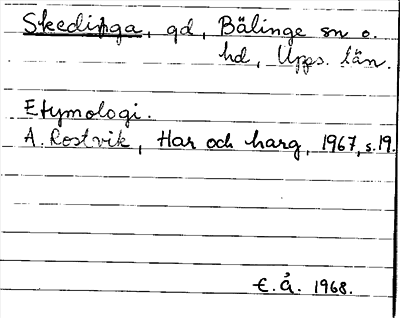 Skedinga, gd, Bälinge sn o.
hd, Upps. län.
Etymologi.
A. Rostvik, Har och harg, 1967, s.19.
E.Å. 1968.